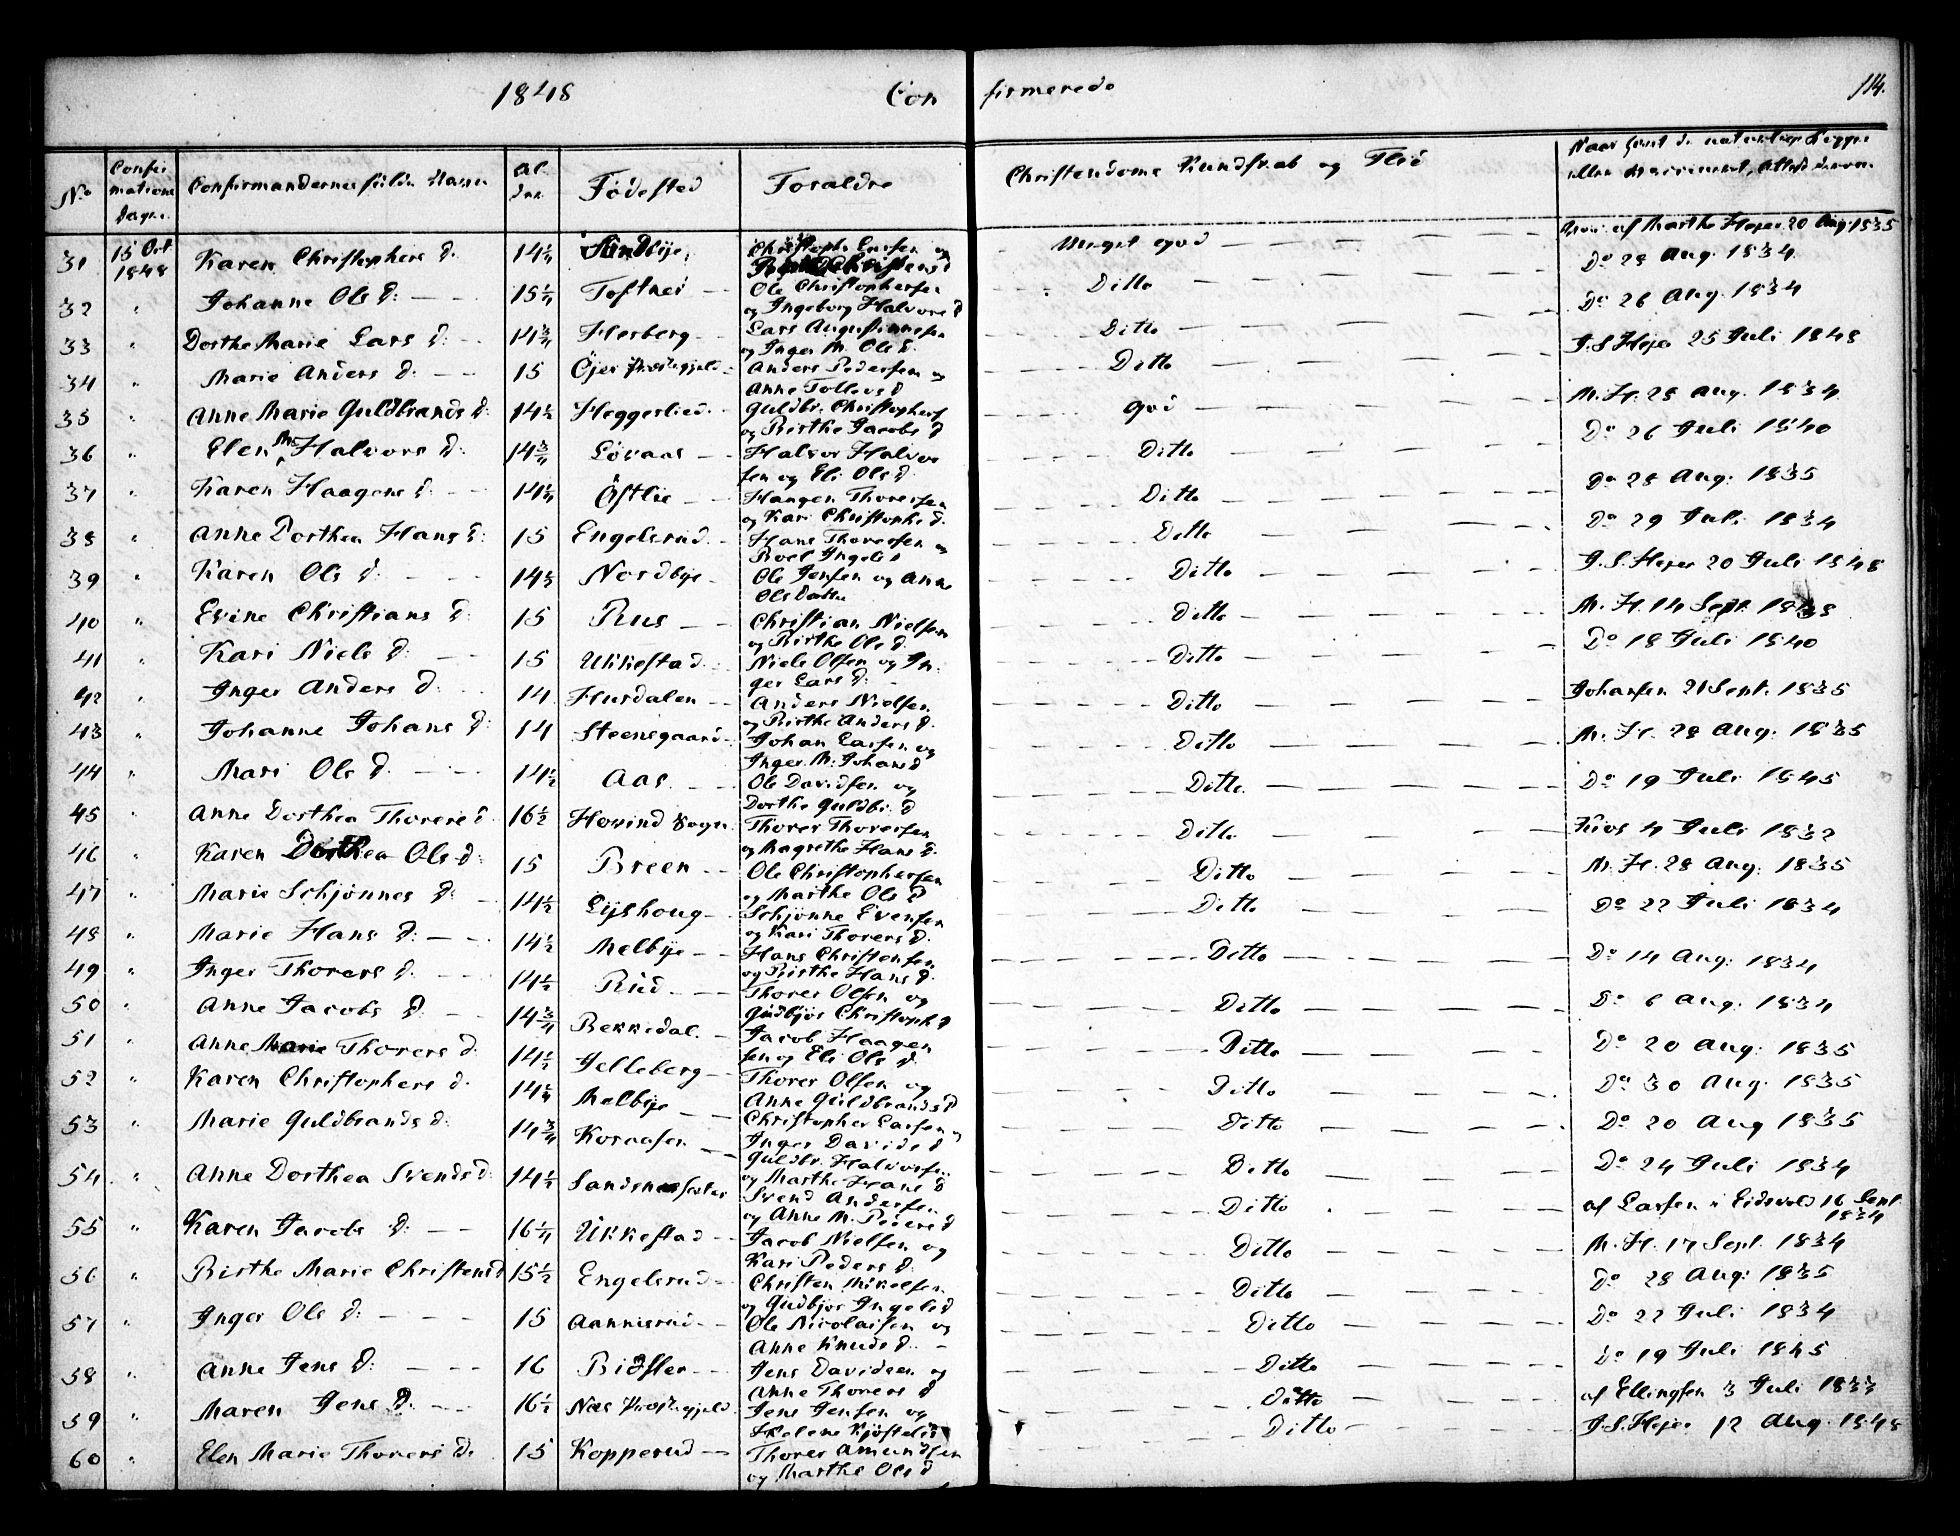 1848 Confirmerede 114.
No Confirmations Dagen. Confirmandernes fulde Navn Alder Fødested Forældre Christendoms Kundskab og Flid
31 15 Oct 1848 Karen Christophers d. 14¼ Sundbye Christoph. Larsen og Meget god 20 Aug 1835
32 " Johanne Ols d: 15¼ Toftnei Ole Christophersen og Ingeborg Halvors d Ditto Do 28 Aug. 1834
33 " Dorthe Marie Lars d: 14¾ Herberg Lars Augustinusen og Inger M. Ols d. Ditto Do 26 Aug. 1834
34 " Marie Anders d: 15 Öjer Præstegjeld Anders Pedersen og Anne Tollevs d Ditto J. S. Hejer 25 Juli 1848
35 " Anne Marie Guldbrands d: 14½ Heggerlied Guldbr. Christophers og Birthe Jacobs d God M. H. 28 Aug. 1834
36 " Elen Me Halvors d: 14¾ Lövaas Halvor Halvorsen og Eli Ols d. Ditto Do 26 Juli 1840
37 " Karen Haagens d: 14¼ Östlie Haagen Thorersen og Kari Christophs d. Ditto Do 28 Aug. 1835
38 " Anne Dorthea Hans d: 15 Engelsrud Hans Thorersen og Boel Ingels d Ditto Do 29 Juli 1834
39 " Karen Ols d: 14½ Nordbye Ole Jensen og Anne Ols Datter Ditto J. S. Hejer 20 Juli 1848
40 " Evine Christians d: 15 Rus Christian Nielsen og Birthe Ols d. Ditto M. H. 14 Sept. 1838
41 " Kari Niels d: 15 Ukkestad Niels Olsen og Inger Lars d: Ditto Do 18 Juli 1840
42 " Inger Anders d: 14 Hurdalen Anders Nielsen og Birthe Anders d. Ditto Johansen 21 Sept. 1835
43 " Johanne Johans d: 14 Steensgaard Johan Larsen og Inger M. Johans d Ditto M. H. 28 Aug. 1835
44 " Mari Ols d: 14½ Aas Ole Davidsen og Dorthe Guldbr. d Ditto Do 19 Juli 1845
45 " Anne Dorthea Thorers d 16½ Hovind Sogn Thorer Thorersen og Magrethe Hans d. Ditto 4 Juli 1832
46 " Karen Dorthea Ols d: 15 Breen Ole Christophersen og Marthe Ols d Ditto M. H. 28 Aug. 1835
47 " Marie Schjönnes d: 14½ Lyshoug Schjönne Evensen og Kari Thorers d. Ditto Do 22 Juli 1834
48 " Marie Hans d: 14½ Melbye Hans Christensen og Birthe Hans d. Ditto Do 14 Aug: 1834
49 " Inger Thorers d. 14½ Rud Thorer Olsen og Gudbjör Christoph. d Ditto Do 6 Aug: 1834
50 " Anne Jacobs d: 14¾ Bekkedal Jacob Haagensen og Eli Ols d. Ditto Do 20 Aug: 1835
51 " Anne Marie Thorers d. 14½ Jelleberg Thorer Olsen og Anne Guldbrands d Ditto Do 30 Aug: 1835
52 " Karen Christophers d. 14½ Melbye Christopher Larsen og Inger Davids d Ditto Do 20 Aug 1835
53 " Marie Guldbrands d: 14¾ Koraasen Guldbr. Halvorsen og Marthe Hans d Ditto Do 24 Juli 1834
54 " Anne Dorthea Svends d: 14½ Svend Andersen og Anne M. Peders d Ditto af Larsen i Eidsvold 16 Sept 1834
55 " Karen Jacobs d: 16¼ Ukkestad Jacob Nielsen og Kari Peders d. Ditto M. H. 17 Sept. 1834
56 " Birthe Marie Christens d 15½ Engelsrud Christen Mikelsen og Gudbjör Ingels d Ditto Do 28 Aug: 1835
57 " Inger Ols d: 15 Aannisrud Ole Nicolaisen og Anne Knuds d. Ditto Do 22 Juli 1834
58 " Anne Jens d: 16 Jens Davidsen og Anne Thorers d Ditto Do 19 Juli 1845
59 " Maren Jens d. 16½ Næs Præstegjeld Jens Jensen og Helene Ditto af Ellingsen 3 Juli 1833
60 " Elen Marie Thorers d. 15 Kopperud Thorer Amundsen og Marthe Ols d Ditto J. S. Hejer 12 Aug. 1848